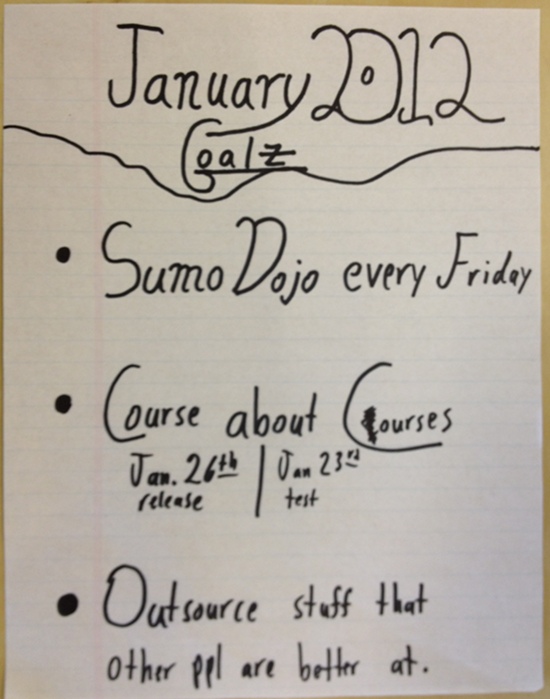 January 2012
Goalz
• Sumo Dojo every Friday
• Course about Courses
Jan. 26th | Jan 23rd
release | test
• Outsource stuff that
other ppl are better at.